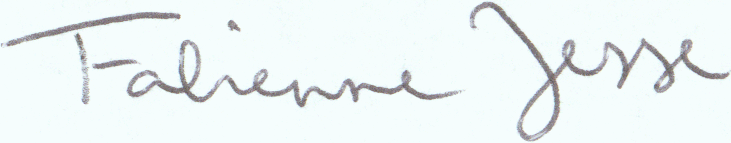 Fabienne Jesse